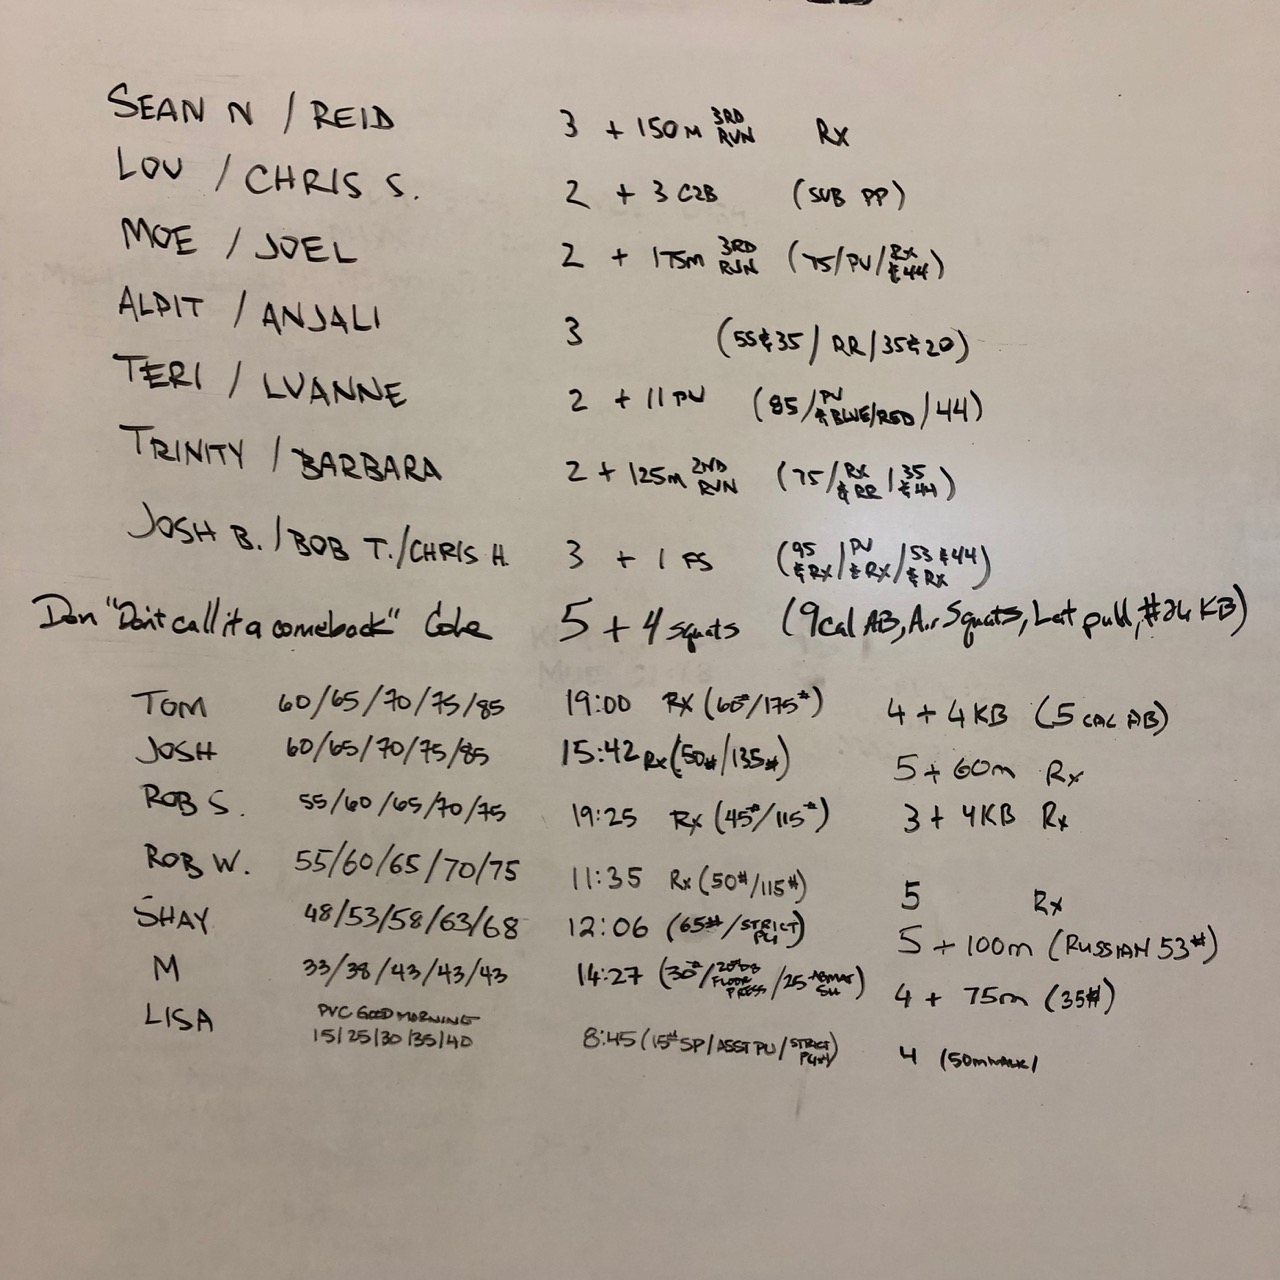 SEAN N / REID 3 + 150M 3RD RUN Rx
LOU / CHRIS S. 2 + 3 C2B (SUB PP)
MOE / JOEL 2 + 175M 3RD RUN (75/PU/Rx & 44)
ALPIT / ANJALI 3 (55&35/RR/35&20)
TERI / LUANNE 2 + 11 PU (85/PU & BLUE/RED/44)
TRINITY / BARBARA 2 + 125M 2ND RUN (75/RX & RR/35 & 44)
JOSH B./BOB T./CHRIS H. 3 + 1 FS (95 & Rx/PU & Rx/53 & 44 & Rx)
Don "Don't call it a comeback" 5 + 4 squats (9 cal AB, Air Squats, Lat pull, #26 KB)
TOM 60/65/70/75/85 19:00 RX (60#/175#) 4 + 4KB (5 CAL AB)
JOSH 60/65/70/75/85 15:42 Rx (50#/135#) 5 + 60m Rx
ROB S. 55/60/65/70/75 19:25 Rx (45#/115#) 3 + 4KB Rx
ROB W. 55/60/65/70/75 11:35 Rx (50#/115#) 5 Rx
SHAY 48/53/58/63/68 12:06 (65#/STRICT PU) 5 + 100m (RUSSIAN 53#)
M 33/38/43/43/43 14:27 (30#/20# DB FLOOR PRESS/25 ABMAT SU) 4 + 75m (35#)
LISA PVC GOOD MORNING 15/25/30/35/40 8:45 (15# SP/ASST PU/STRICT 4 (50m WALK)